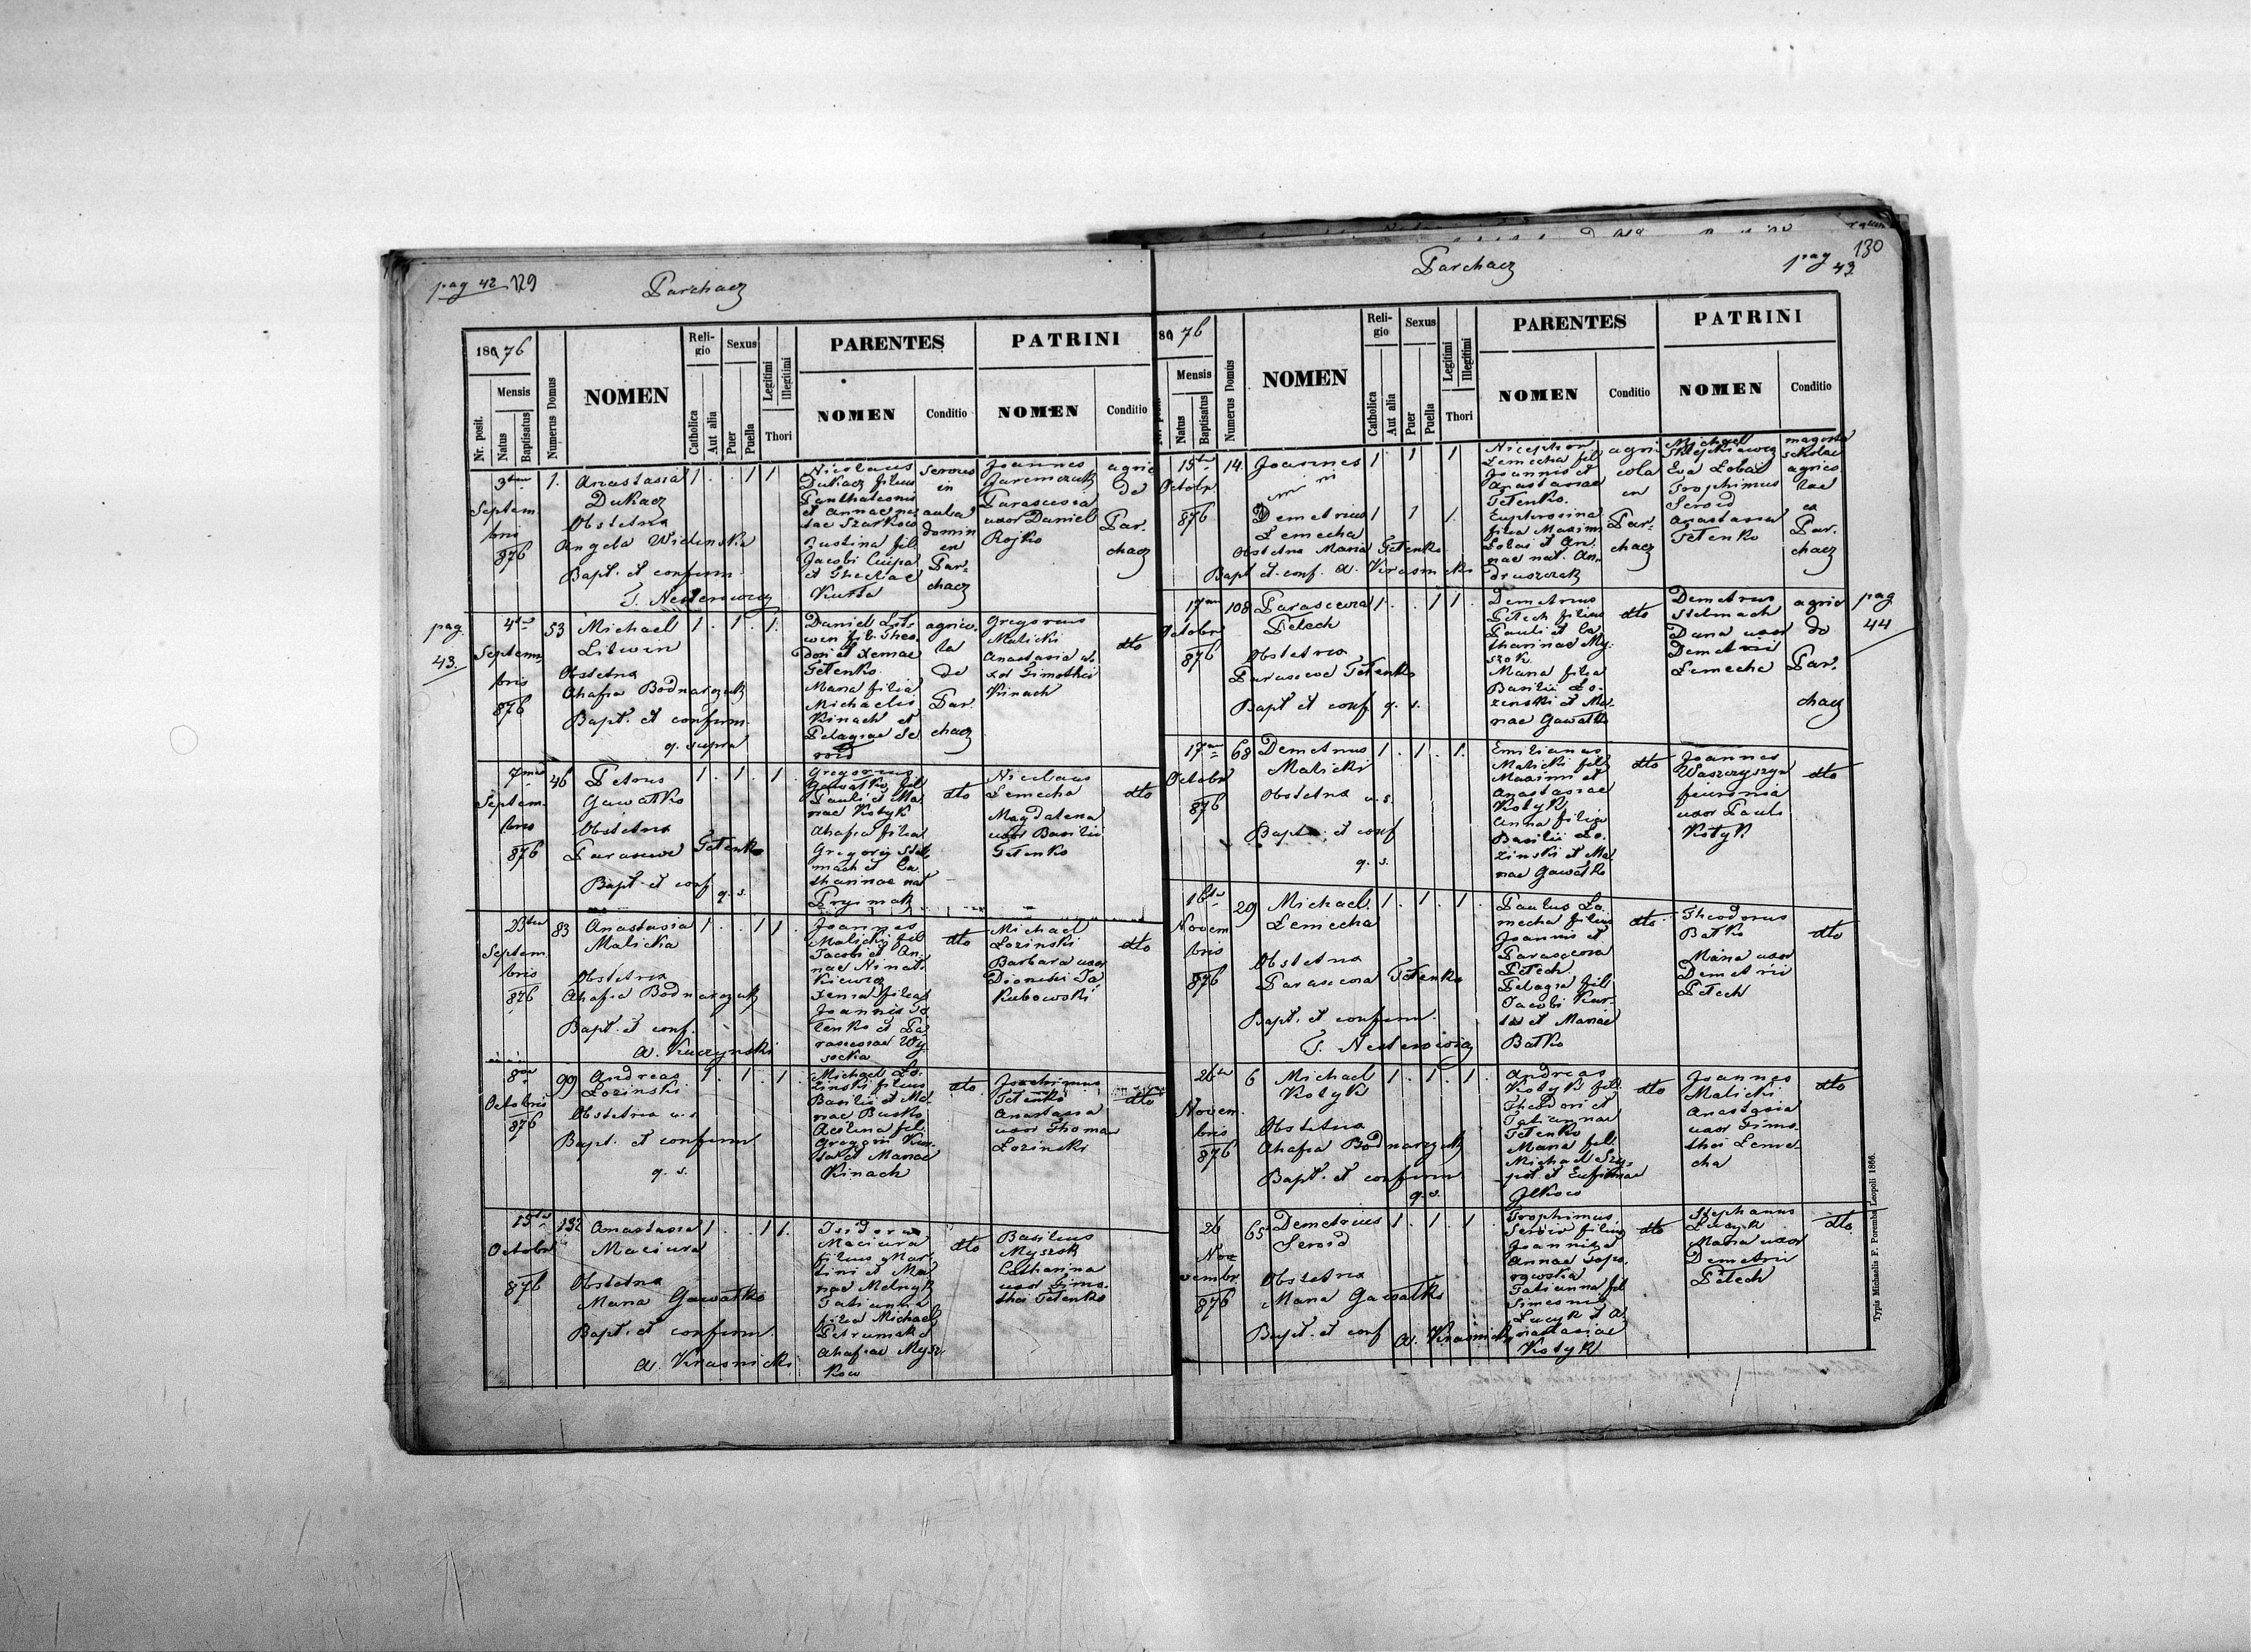 pag 42 129
Parchacz
1876
Nr. posit.
Mensis
Natus
Baptisatus
Numerus Domus
NOMEN
Religio
Catholica
Aut alia
Sexus
Puer
Puella
Legitimi
Illegitimi
Thori
PARENTES
NOMEN
Conditio
PATRINI
NOMEN
Conditio
3tia
Septem
bris
876
1.
Anastasia
Dukacz
Obstetrix
Angela
Bapt. et confirm.
T. Nesterowicz
1 . . 1 1
Nicolaus
Dukacz filius
Panthaleonis
et Annae na
tae Szarkow
Justina fil
Jacobi
et Theclae
Kurta
servus
in
aula
domin
en
Par-
chacz
Joannes
Jaremczuk
Parascevia
uxor Daniel
Rojko
agric
de
Par.
chacz
pag
43.
4ta
Septem
bris
876
53
Michael
Litwin
Obstetrix
Ahafia Bodnarczuk
Bapt. et confirm.
q. supra
1 . 1 . 1.
Daniel Lit-
win fil. Theo
dori et Xeniae
Tetenko
Maria filia
Michaelis
Kinach et
Pelagiae Se
roid
agrico.
la
de
Par.
chacz
Gregorius
Malicki
Anastasia u-
xor Timothei
Kinach
dto
7ma
Septem.
bris
876
46
Petrus
Gawatko
Obstetrix
Parascve Tetenko
Bapt. et conf
q. s.
1 . 1 . 1
Gregorius
Gawatko fil
Pauli et Ma
riae Kotyk
Ahafia filia
Gregorii Stel
mach et Ca
tharinae nat
Pryjmak
dto
Nicolaus
Lemecha
Magdalena
uxor Basilii
Tetenko
dto
23tia
Septem.
bris
876
83
Anastasia
Malicka
Obstetrix
Ahafia Bodnarczuk
Bapt. et conf.
A. Kuczynski
1 . . 1 1 .
Joannes
Malicki fil
Jacobi et An
nae
Xenia filia
Joannis Te
tenko et Pa
rascevae Wy
socka
dto
Michael
Lozinski
Barbara uxor
Dionisii Ja
kubowski
dto
8va
Octobris
876
99
Andreas
Lozinski
Obstetrix u. s.
Bapt. et confirm
q. s.
1 . 1 . 1 .
Michael Lo
zinski filius
Basilii et Ma
riae Busko
Acilina fil.
Greggorii Kur
ta et Mariae
Kinach
dto
Joachimus
Tetenko
Anastasia
uxor Thomae
Lozinski
dto
15ta
Octobr
876
132
Anastasia
Maciura
Obstetrix
Maria Gawatko
Bapt. et confirm.
A. Krasnicki
1 . . 1 1.
Isidorus
Maciura
filius Mar
tini et Ma
riae Melnyk
Tatianna
filia Michael
Petrumak et
Ahafiae Mysz
kow
dto
Basilius
Myszok
Catharina
uxor Timo-
thei Tetenko
Parchacz
pag 43
130
1876
Mensis
Natus
Baptisatus
Numerus Domus
NOMEN
Religio
Catholica
Aut alia
Sexus
Puer
Puella
Legitimi
Illegitimi
Thori
PARENTES
NOMEN
Conditio
PATRINI
NOMEN
Conditio
15ta
Octobr
876
14.
Joannes
Demetrius
Lemecha
Obstetrix Maria Tetenko
Bapt et. conf. A. Krasnicki
1 1 1
1 1 1.
Nicephor
Lemecha fil
Joannis et
Anastasiae
Tetenko.
Euphrosina
filia Maximi
Lobai et An-
nae nat. An-
druszczak
agri
cola
en
Par-
chacz
Michael
Eva Lobai
Trophimus
Seroid
Anastasia
Tetenko
magistr
scholae
agrico
lae
ex
Par-
chacz
17ma
Octobr
876
108
Parascevia
Petech
Obstetrix
Parasceve Tetenko
Bapt et conf q. s.
1 . . 1 1 .
Demetrius
Petech filius
Pauli et Ca
tharinae My-
szok
Maria filia
Basilii Lo-
zinski et Ma-
riae Gawatko
dto
Demetrius
Stelmach
Daria uxor
Demetrii
Lemecha
agric
de
Par.
chacz
pag
44
17ma
Octobr
876
68
Demetrius
Malicki
Obstetrix u. s.
Bapt. et conf
q. s.
1 . 1 . 1.
Emilianus
Malicki fil
Maximi et
Anastasiae
Kotyk
Anna filia
Basilii Lo-
zinski et Ma
riae Gawatko
dto
Joannes
Waszczyszyn
uxor Pauli
Kotyk
dto
16ta
Novem
bris
876
29
Michael
Lemecha
Obstetrix
Parascevia Tetenko
Bapt. et confirm.
T. Nesterowicz
1 . 1 . 1 .
Paulus Le
mecha filius
Joannis et
Parascevia
Petech.
Pelagia fil
Jacobi Kur-
ta et Mariae
Batko
dto
Theodorus
Batko
Maria uxor
Demetrii
Petech
dto
26ta
Novem.
bris
876
6
Michael
Kotyk
Obstetrix
Ahafia Bodnarczuk
Bapt. et confirm
q. s.
1 . 1 . 1 .
Andreas
Kotyk fil.
Theodori et
Tatiannae
Tetenko
Maria fil.
Michael
et Eufimiae
Jlkow
dto
Joannes
Malicki
Anastasia
uxor Timo-
thei Leme-
cha
dto
26
No
vembr.
876
65
Demetrius
Seroid
Obstetrix
Maria Gawatko
Bapt. et conf A. Krasnicki
1 . 1 . 1
Trophimus
Seroid filius
Joannis et
Annae Topo-
rowska
Tatianna fil
Simeonis
Lucyk et A
nastasiae
Kotyk
dto
Stephanus
Lucyk
Maria uxor
Demetrii
Petech
dto
Typis Michaelis F. Poremba Leopoli 1866.